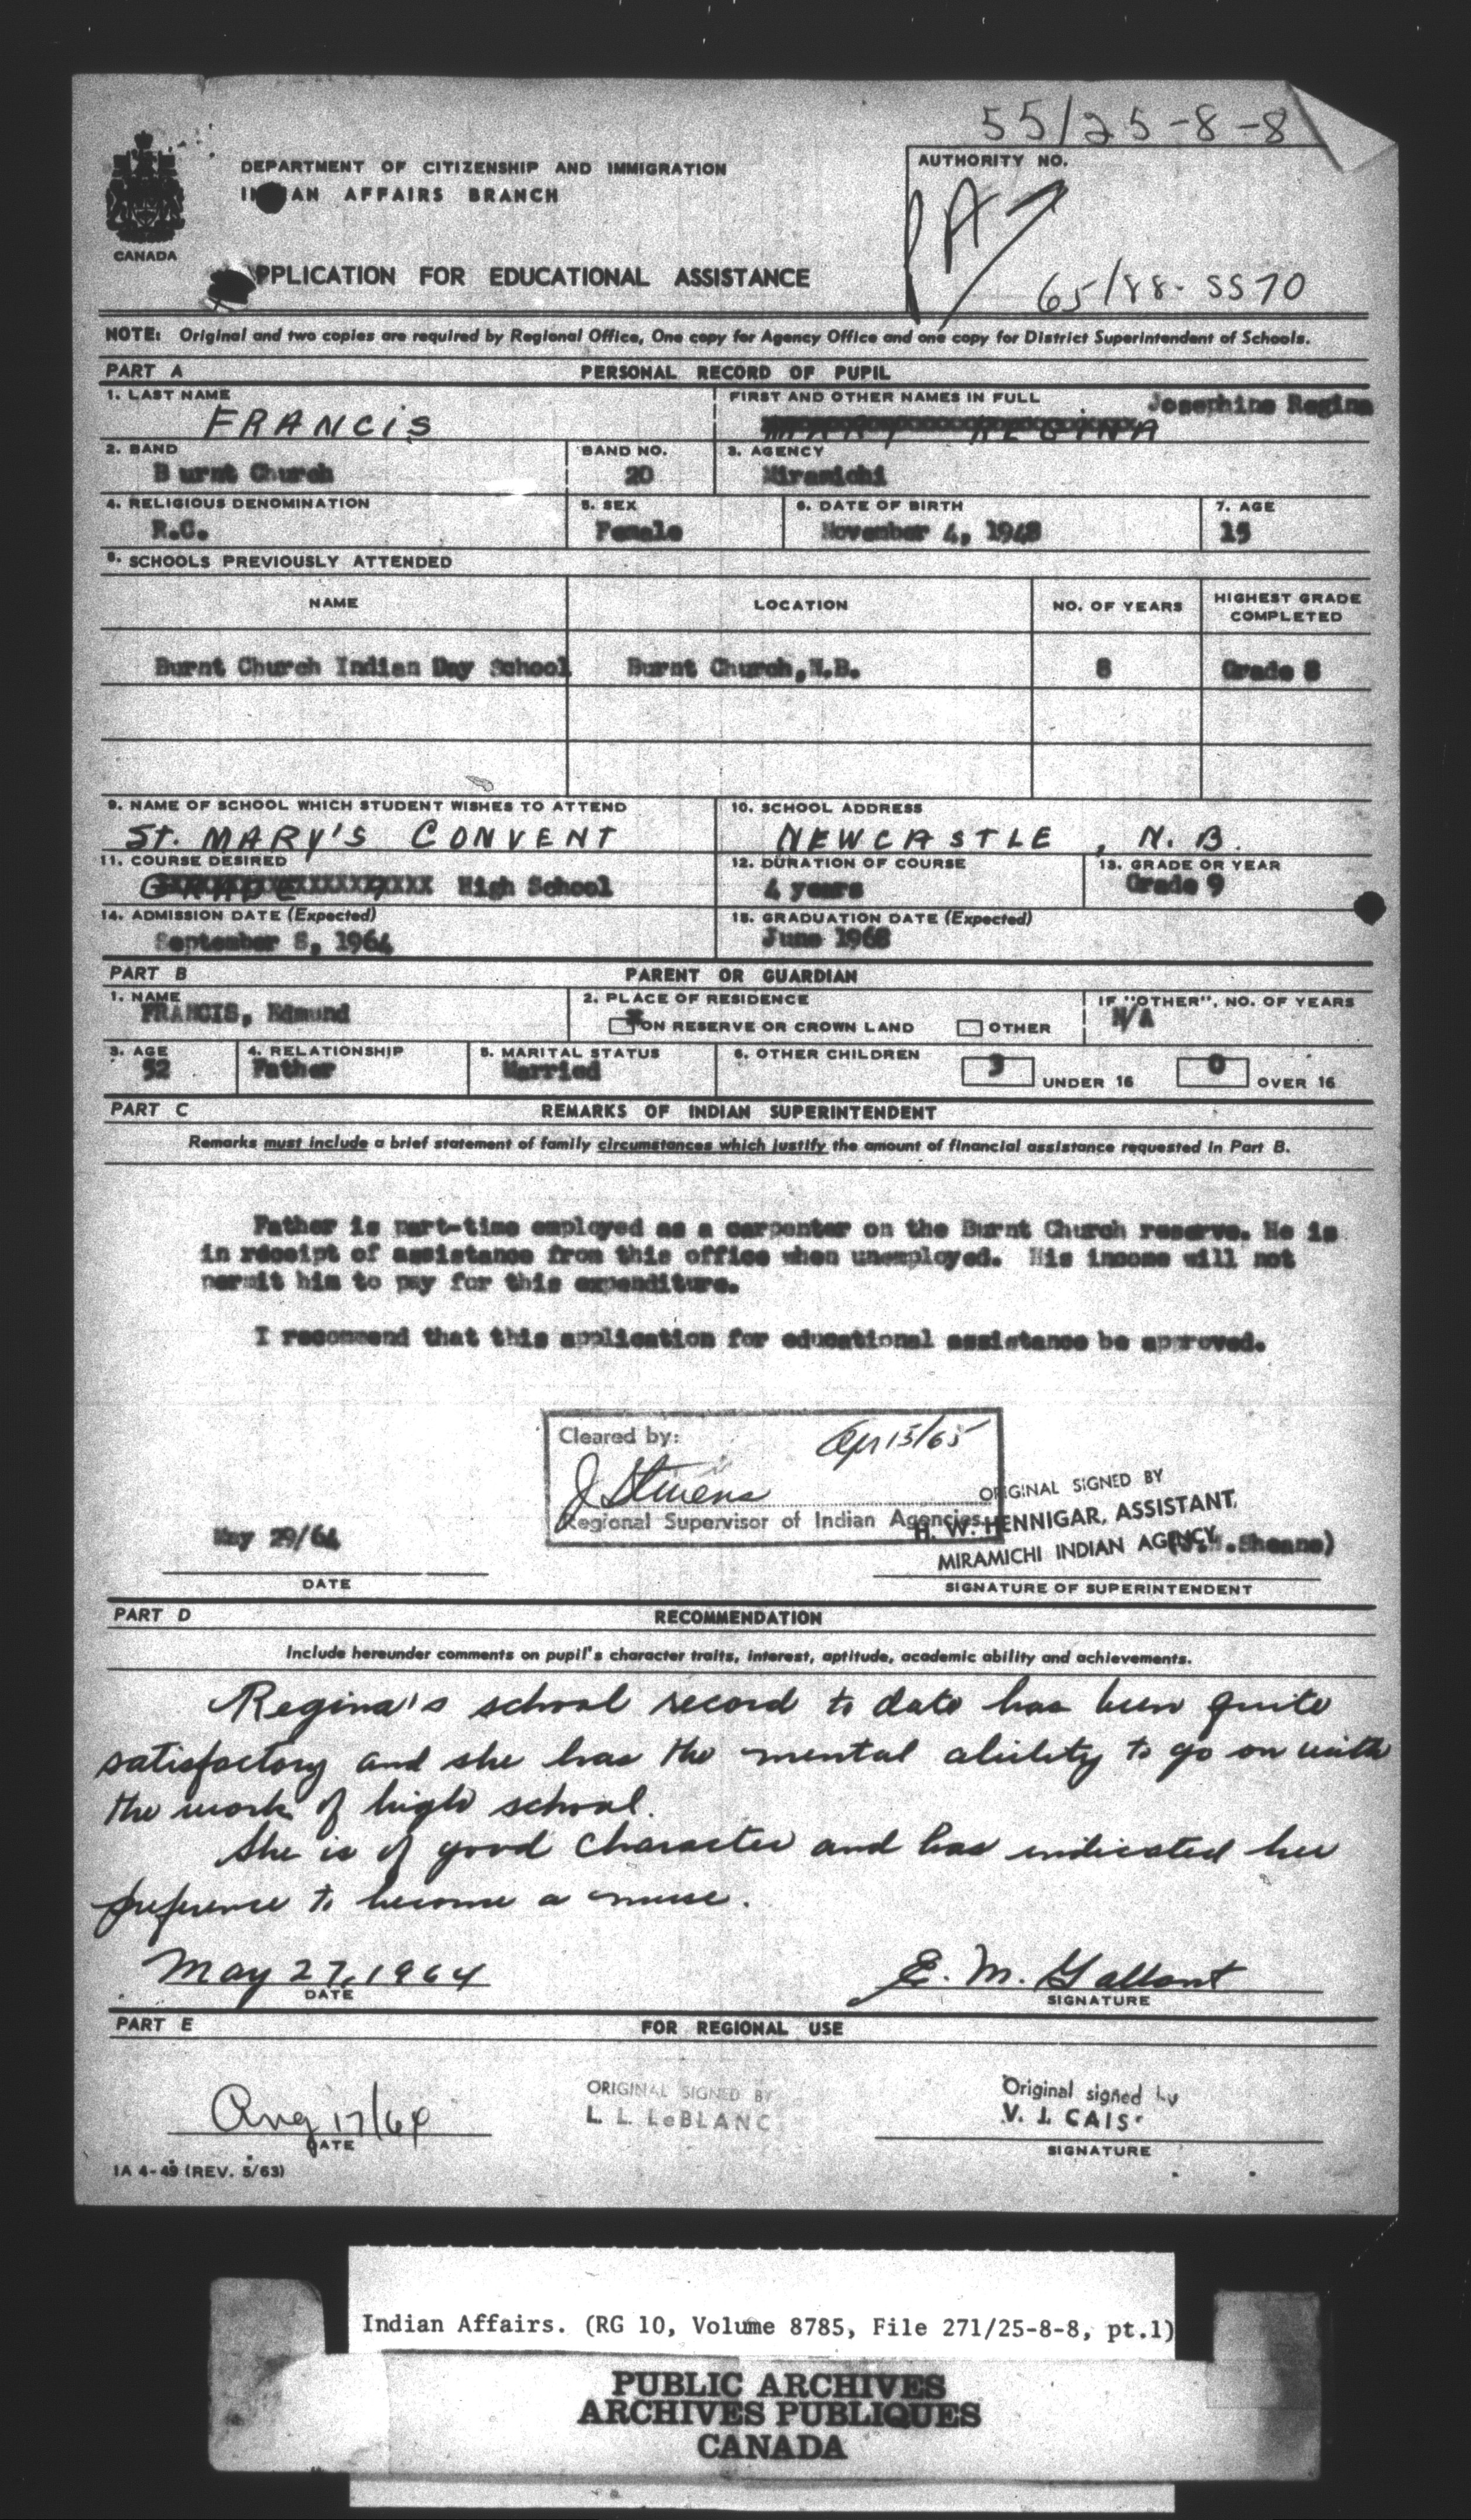 55/25-8-8
DEPARTMENT OF CITIZENSHIP AND IMMIGRATION
AUTHORITY NO.
AFFAIRS BRANCH
CANADA
PPLICATION FOR EDUCATIONAL ASSISTANCE
65/88-SS70
NOTE: Original and two copies are required by Regional Office, One copy for Agency Office and one copy for District Superintendent of Schools.
PART A PERSONAL RECORD OF PUPIL
1. LAST NAME FIRST AND OTHER NAMES IN FULL Josephine Regina
FRANCIS MARY REGINA
2. BAND BAND NO. 3. AGENCY
B urnt Church 20 Miramichi
4. RELIGIOUS DENOMINATION 5. SEX 6. DATE OF BIRTH 7. AGE
R.C. Female November 4, 1948 15
8. SCHOOLS PREVIOUSLY ATTENDED
NAME LOCATION NO. OF YEARS HIGHEST GRADE COMPLETED
Burnt Church Indian Day School Burnt Church,N.B. 8 Grade 8
9. NAME OF SCHOOL WHICH STUDENT WISHES TO ATTEND 10. SCHOOL ADDRESS
ST. MARY'S CONVENT NEWCASTLE, N.B.
11. COURSE DESIRED 12. DURATION OF COURSE 13. GRADE OR YEAR
High School 4 years Grade 9
14. ADMISSION DATE (Expected) 15. GRADUATION DATE (Expected)
September 8, 1964 June 1968
PART B PARENT OR GUARDIAN
1. NAME 2. PLACE OF RESIDENCE IF "OTHER", NO. OF YEARS
FRANCIS, Edmund x ON RESERVE OR CROWN LAND OTHER N/A
3. AGE 4. RELATIONSHIP 5. MARITAL STATUS 6. OTHER CHILDREN
52 Father Married 3 UNDER 16 0 OVER 16
PART C REMARKS OF INDIAN SUPERINTENDENT
Remarks must include a brief statement of family circumstances which justify the amount of financial assistance requested in Part B.
Father is part-time employed as a carpenter on the Burnt Church reserve. He is
in receipt of assistance from this office when unemployed. His income will not
permit him to pay for this expenditure.
I recommend that this application for educational assistance be approved.
Cleared by: Apr 15/65
J Stevens
Regional Supervisor of Indian Agencies
ORIGINAL SIGNED BY
H. W. HENNIGAR, ASSISTANT,
MIRAMICHI INDIAN AGENCY
Sheane)
May 29/64
DATE
SIGNATURE OF SUPERINTENDENT
PART D RECOMMENDATION
Include hereunder comments on pupil's character traits, interest, aptitude, academic ability and achievements.
Regina's school record to date has been quite
satisfactory and she has the mental ability to go on with
the work of high school.
She is of good character and has indicated her
preference to become a nurse.
May 27, 1964 E. M. Gallant
DATE SIGNATURE
PART E FOR REGIONAL USE
ORIGINAL SIGNED BY Original signed by
Aug 17/64 L. L. LeBLANC V. J. CAIS
DATE SIGNATURE
IA 4-49 (REV. 5/63)
Indian Affairs. (RG 10, Volume 8785, File 271/25-8-8, pt.1)
PUBLIC ARCHIVES
ARCHIVES PUBLIQUES
CANADA